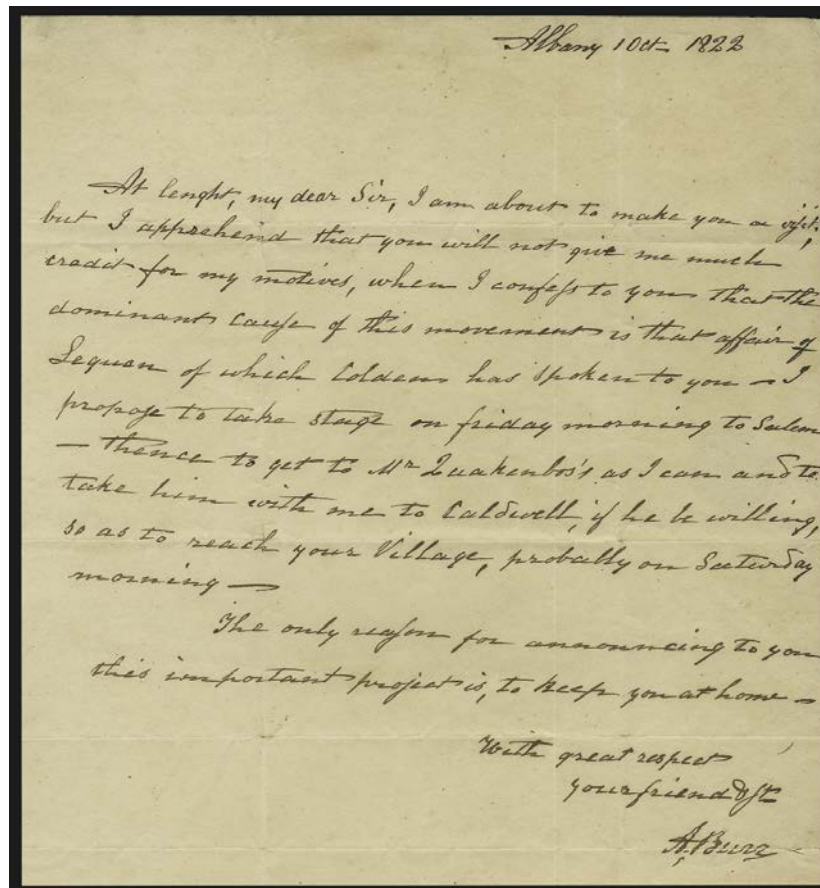 Albany 1 Oct 1822
At lenght, my dear Sir, I am about to make you a visit;
but I apprehend that you will not give me much
credit for my motives, when I confess to you that the
dominant cause of this movement is that affair of
Lequen of which Colden has spoken to you — I
propose to take stage on friday morning to Salem
— thence to get to Mr Quakenbos's as I can and to
take him with me to Caldwell, if he be willing,
so as to reach your Village, probally on Saturday
morning —
The only reason for announcing to you
this important project is, to keep you at home —
With great respect
your friend & st
A. Burr